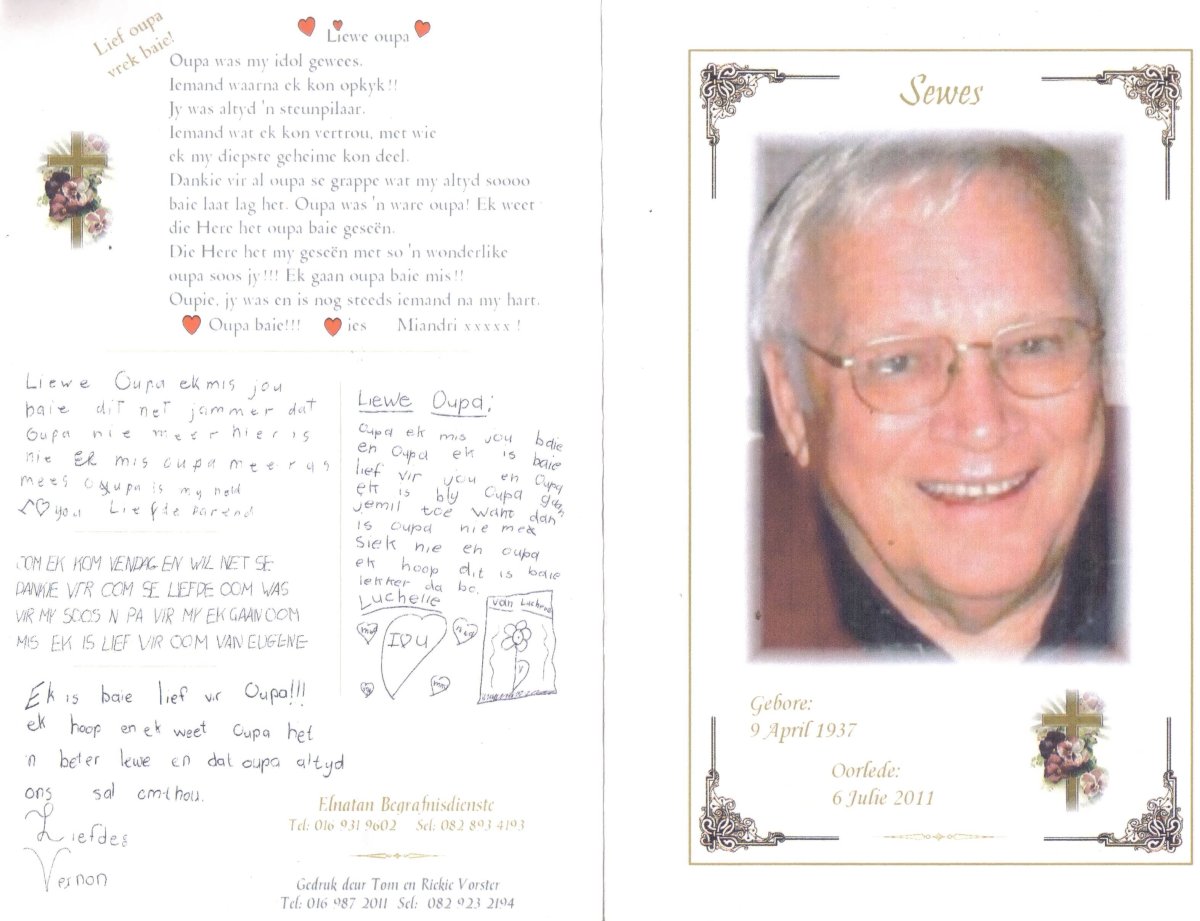 Lief oupa
vrek baie!
Liewe oupa
Oupa was my idol gewees.
Iemand waarna ek kon opkyk!!
Jy was altyd 'n steunpilaar.
Iemand wat ek kon vertrou, met wie
ek my diepste geheime kon deel.
Dankie vir al oupa se grappe wat my altyd soooo
baie laat lag het. Oupa was 'n ware oupa! Ek weet
die Here het oupa baie geseën.
Die Here het my geseën met so 'n wonderlike
oupa soos jy!!! Ek gaan oupa baie mis!!
Oupie, jy was en is nog steeds iemand na my hart.
Oupa baie!!! ies Miandri xxxxx !
Liewe Oupa ek mis jou
baie dit net jammer dat
Oupa nie meer hier is
nie Ek mis oupa meer as
mees is my held
you Liefde
OOM EK KOM VENDAG EN WIL NET SE
DANKIE VIR OOM SE LIEFDE OOM WAS
VIR MY SOOS N PA VIR MY EK GAAN OOM
MIS EK IS LIEF VIR OOM VAN EUGENE
Ek is baie lief vir Oupa!!!
ek hoop en ek weet Oupa het
'n beter lewe en dat oupa altyd
ons sal onthou.
Liefdes
Vernon
Liewe Oupa:
Oupa ek mis jou baie
en Oupa ek is baie
lief vir jou en Oupa
ek is bly Oupa gaan
jemil toe want dan
is oupa nie meer
siek nie en oupa
ek hoop dit is baie
lekker da bo.
Luchelle
I U
van Luchelle
Elnatan Begrafnisdienste
Tel: 016 931 9602 Sel: 082 893 4193
Gedruk deur Tom en Rickie Vorster
Tel: 016 987 2011 Sel: 082 923 2194
Sewes
Gebore:
9 April 1937
Oorlede:
6 Julie 2011